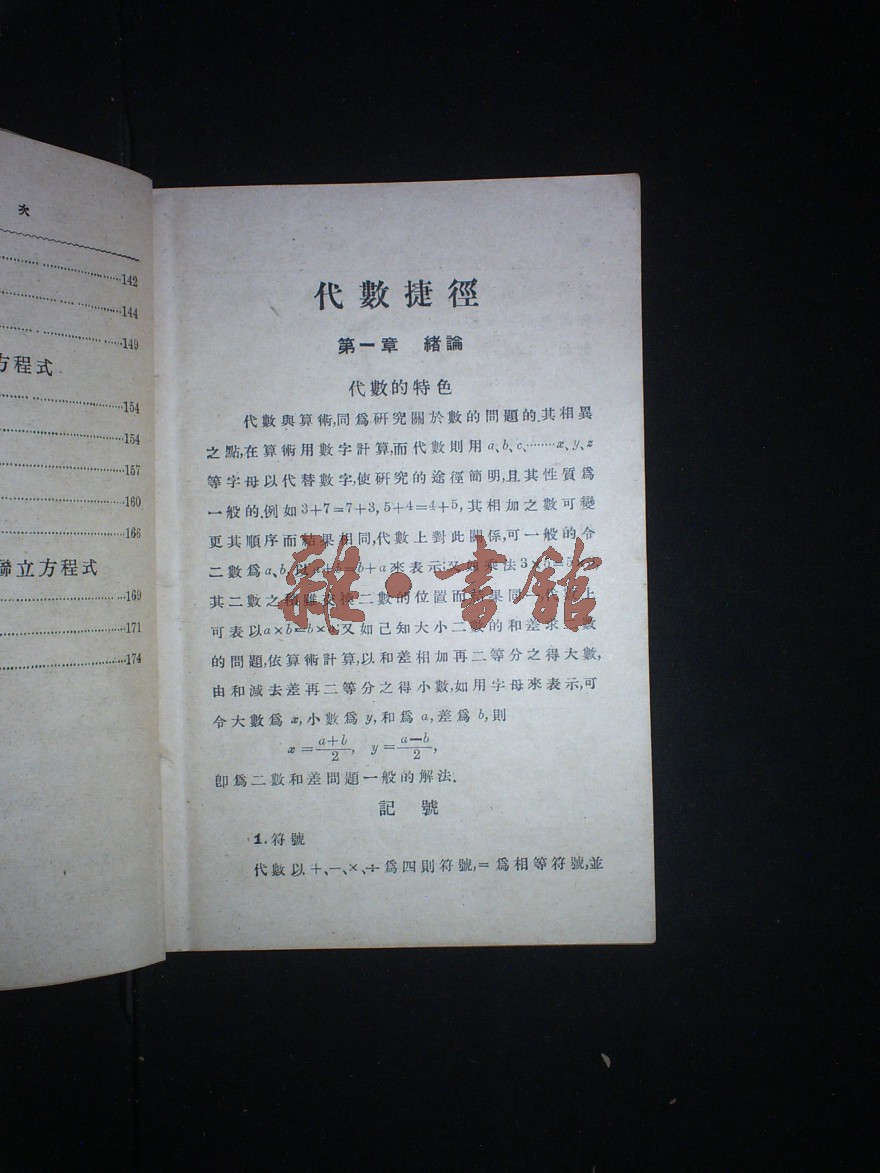 次
142
144
149
方程式
154
154
157
160
166
聯立方程式
169
171
174
代數捷徑
第一章 緒論
代數的特色
代數與算術,同爲硏究關於數的問題的.其相異
之點,在算術用數字計算,而代數則用a、b、c、……x、y、z
等字母以代替數字,使硏究的途徑簡明,且其性質爲
一般的.例如3+7=7+3, 5+4=4+5, 其相加之數可變
更其順序而結果相同,代數上對此關係,可一般的令
二數爲a、b,以a+b=b+a來表示;又如乘法3×5=5×3,
其二數之積雖交換二數的位置而結果同一,代數上
可表以a×b=b×a;又如已知大小二數的和差求二數
的問題,依算術計算,以和差相加再二等分之得大數,
由和減去差再二等分之得小數,如用字母來表示,可
令大數爲 x, 小數爲 y, 和爲 a, 差爲 b, 則
x=\frac{a+b}{2}, y=\frac{a-b}{2},
卽爲二數和差問題一般的解法.
記號
1.符號
代數以+、-、×、÷爲四則符號,=爲相等符號,並
雜·書館